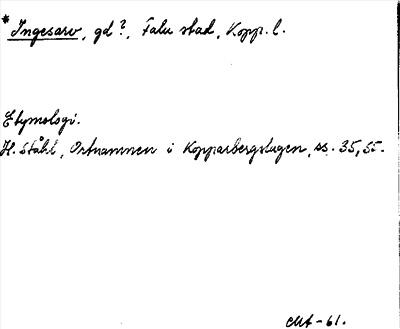 * Ingesarv, gd?, Falu stad, Kopp. l.
Etymologi.
H. Ståhl, Ortnamnen i Kopparbergslagen, ss. 35, 55.
-61.